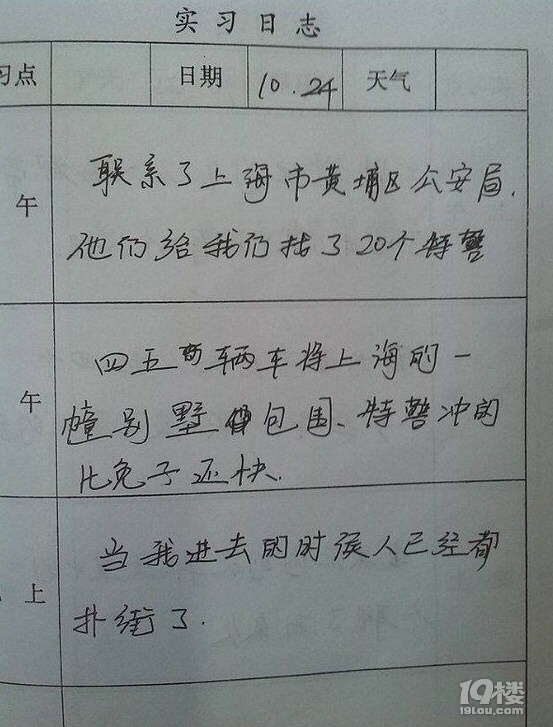 实习日志
习点 日期 10.24 天气
午
联系了上海市黄埔区公安局.
他们给我们找了20个特警
午
四五辆车将上海的一
幢别墅包围、特警冲的
比兔子还快.
上
当我进去的时候人已经都
扑街了.
19楼
19lou.com